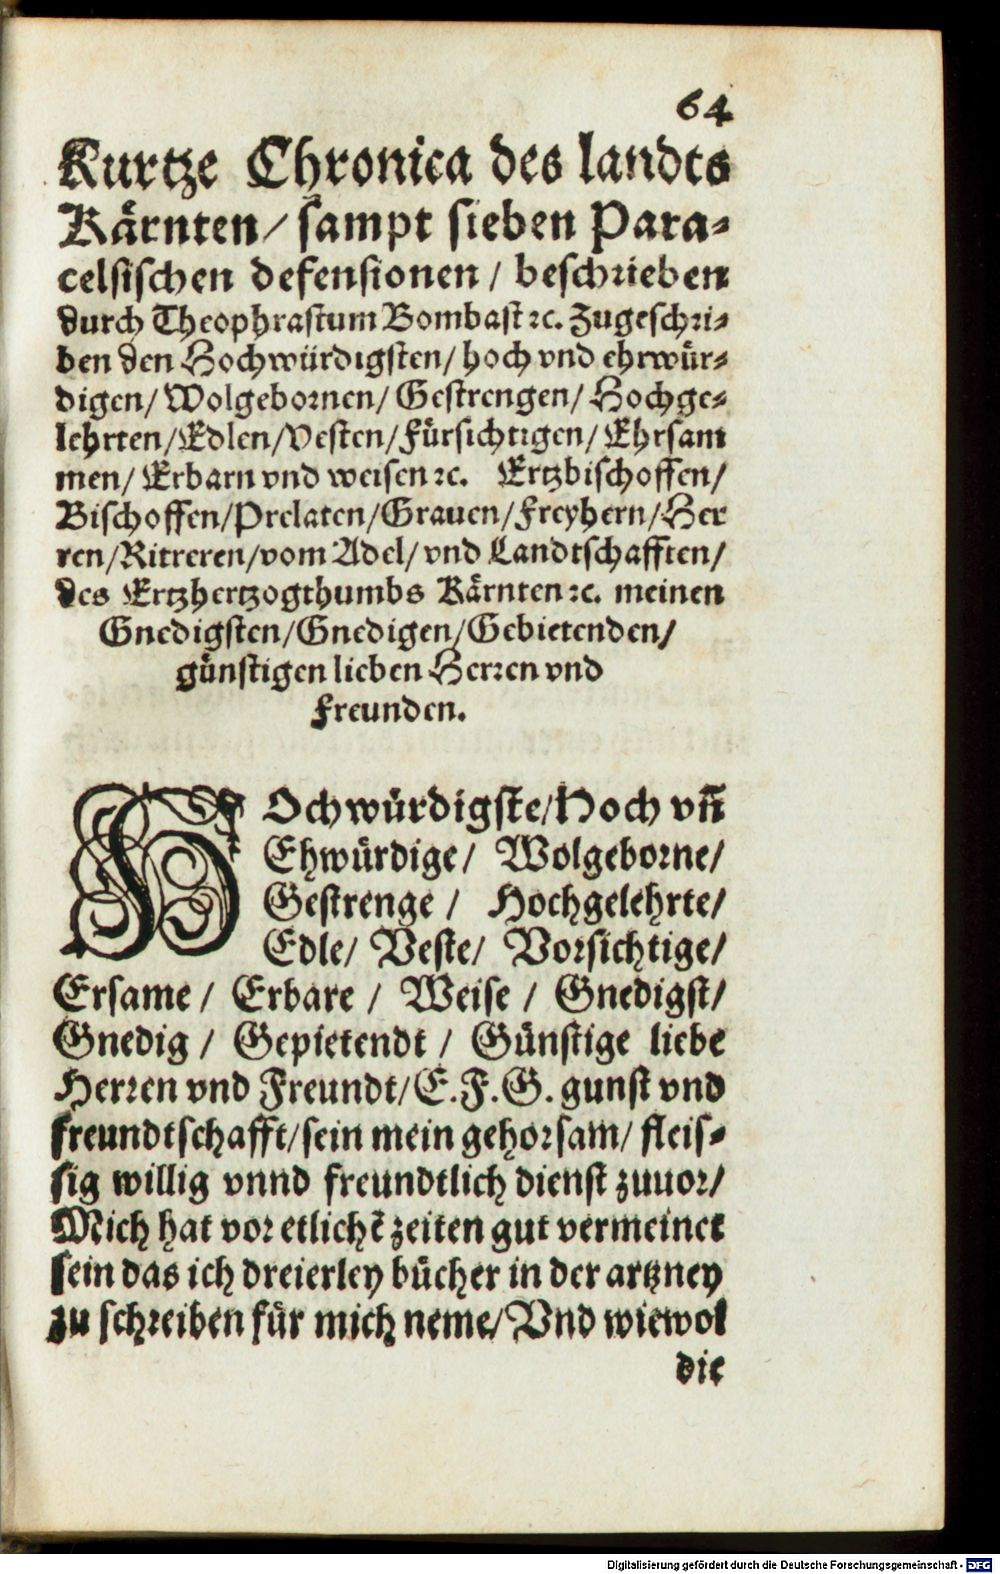 64
Kurtze Chronica des landts
Kärnten/ sampt sieben Para-
celsischen defensionen/ beschrieben
durch Theophrastum Bombast ꝛc. Zugeschri-
ben den Hochwürdigsten/ hoch vnd ehrwür-
digen/ Wolgebornen/ Gestrengen/ Hochge-
lehrten/ Edlen/ Vesten/ Fürsichtigen/ Ehrsam
men/ Erbarn vnd weisen ꝛc. Ertzbischoffen/
Bischoffen/ Prelaten/ Grauen/ Freyhern/ Her
ren/ Ritreren/ vom Adel/ vnd Landtschafften/
des Ertzhertzogthumbs Kärnten ꝛc. meinen
Gnedigsten/ Gnedigen/ Gebietenden/
günstigen lieben Herren vnd
Freunden.
HOchwürdigste/ Hoch vñ
Ehwürdige/ Wolgeborne/
Gestrenge/ Hochgelehrte/
Edle/ Veste/ Vorsichtige/
Ersame/ Erbare/ Weise/ Gnedigst/
Gnedig/ Gepietendt/ Günstige liebe
Herren vnd Freundt/ E. F. G. gunst vnd
freundtschafft/ sein mein gehorsam/ fleis-
sig willig vnnd freundtlich dienst zuuor/
Mich hat vor etlichē zeiten gut vermeinet
sein das ich dreierley bücher in der artzney
zu schreiben für mich neme/ Vnd wiewol
die
Digitalisierung gefördert durch die Deutsche Forschungsgemeinschaft - DFG